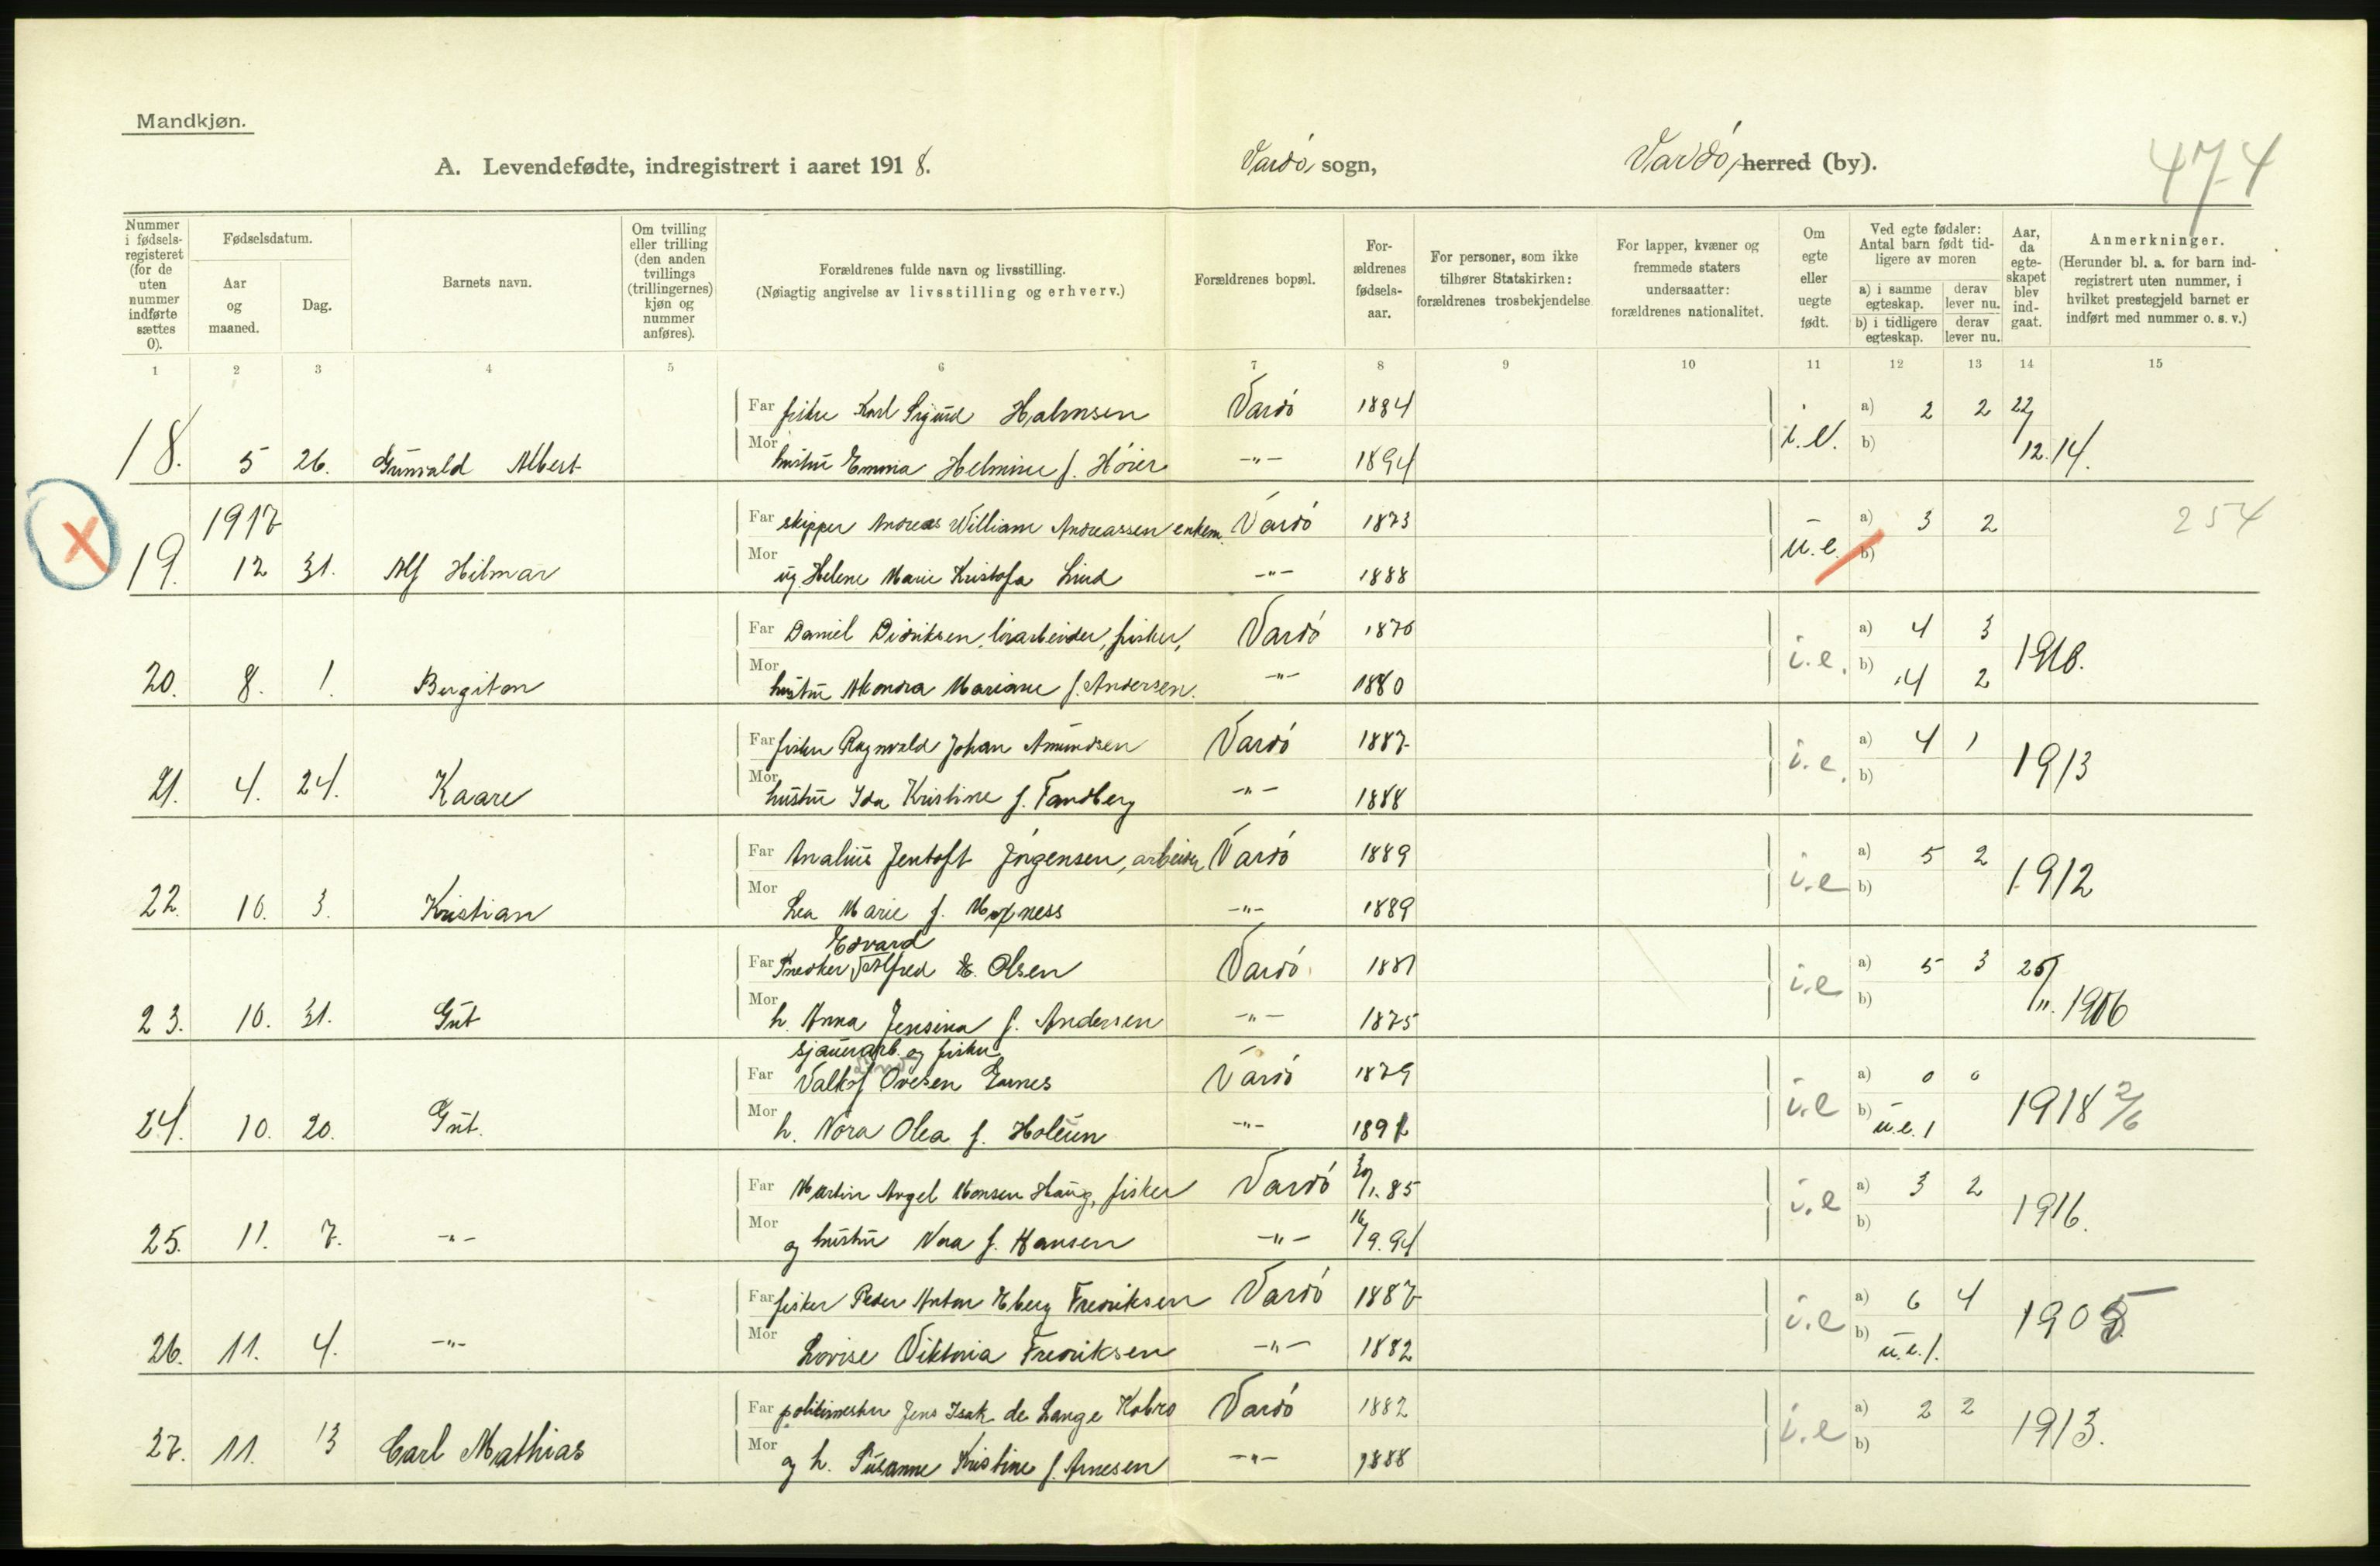 Mandkjøn.
A. Levendefødte, indregistrert i aaret 1918. Vardø sogn, Vardø, herred (by). 474
Nummer i fødsels-registeret (for de uten nummer indførte sættes 0). Fødselsdatum. Aar og maaned. Dag. Barnets navn. Om tvilling eller trilling (den anden tvillings (trillingernes) kjøn og nummer anføres). Forældrenes fulde navn og livsstilling. (Nøiagtig angivelse av livsstilling og erhverv.) Forældrenes bopæl. For-ældrenes fødsels-aar. For personer, som ikke tilhører Statskirken: forældrenes trosbekjendelse For lapper, kvæner og fremmede staters undersaatter: forældrenes nationalitet. Om egte eller uegte født. Ved egte fødsler: Antal barn født tid-ligere av moren a) i samme egteskap. derav lever nu. b) i tidligere egteskap. derav lever nu. Aar, da egte-skapet blev ind-gaat. Anmerkninger. (Herunder bl. a. for barn ind-registrert uten nummer, i hvilket prestegjeld barnet er indført med nummer o. s. v.)
1 2 3 4 5 6 7 8 9 10 11 12 13 14 15
Far fisker Karl Sigurd Halmsen Vardø 1884 a) 2 2 22/
18. 5 26. Gunvald Albert Mor hustru Emma Helmine f. Höier -"- 1894 i.e. b) 12.14.
1917 Far skipper Andreas William Andreassen enkem. Vardø 1873 a) 3 2 254
19. 12 31. Alf Hilmar Mor ug Helene Marie Kristofa Lind -"- 1888 u.e. b)
Far Daniel Didriksen, fisker, Vardø 1876 a) 4 3
20. 8. 1. Bergiton Mor hustru Mariane f. Andersen. -"- 1880 i.e. b) 4 2 1916.
Far fisker Ragnvald Johan Amundsen Vardø 1887 a) 4 1
21. 4. 24. Kaare Mor hustru Ida Kristine f. Tandberg -"- 1888 i.e. b) 1913
Far Analius Jentoft Jörgensen, arbeider Vardø 1889 a) 5 2
22. 10. 3. Kristian Mor Lea Marie f. -"- 1889 i.e b) 1912
Edvard
Far Snedker Alfred E. Olsen Vardø 1881 a) 5 3 25/
23. 10. 31. Gut Mor h. Anna Jensina f. Andersen -"- 1875 i.e b) 11. 1906
sjauerarb. og fisker
Far Ovesen Vardø 1879 a) 0 0
24. 10. 20. Gut. Mor h. Nora Olea f. -"- 1891 i.e b) u.e. 1 1918 2/6
Far Martin Angel Monsen Haug, fisker Vardø 30/1.85 a) 3 2
25. 11. 7. -"- Mor og hustru Nora f. Hansen -"- 16/9.94 i.e b) 1916.
Far fisker Peder Anton Eberg Fredriksen Vardø 1887 a) 6 4
26. 11. 4. -"- Mor Lovise Viktoria Fredriksen -"- 1882 i.e b) u.e. 1. 1905
Far politimester Jens Isak de Lange Kobro Vardø 1882 a) 2 2
27. 11. 13 Carl Mathias Mor og h. Susanne Kristine f. Arnesen -"- 1888 i.e b) 1913.